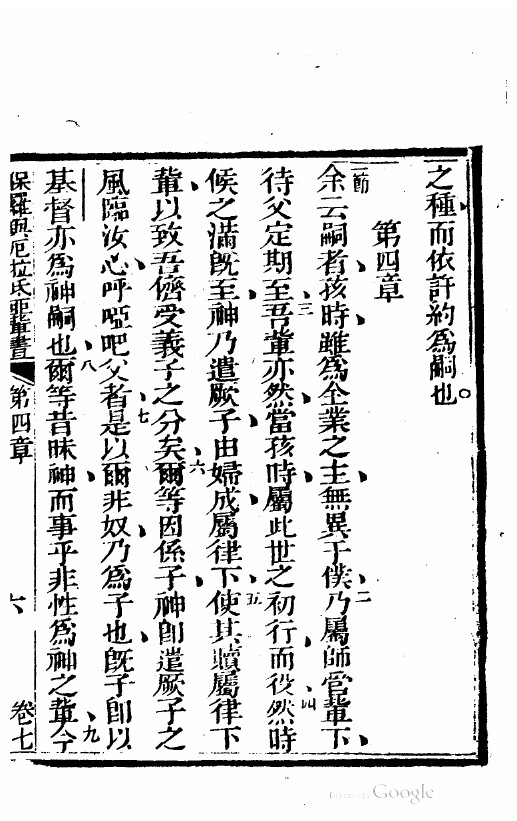 之種而依許約爲嗣也。
第四章
一節余云嗣者孩時雖爲全業之主無異于僕二乃屬師官輩下
待父定期至三吾輩亦然當孩時屬此世之初行而役四然時
候之滿旣至神乃遣厥子由婦成屬律下五使其贖屬律下
輩以致吾儕受義子之分矣六爾等因係子神卽遣厥子之
風臨汝心呼啞吧父者七是以爾非奴乃爲子也旣子卽以
基督亦爲神嗣也八爾等昔昧神而事乎非性爲神之輩九今
保羅與厄拉氏亞輩書 第四章 六 卷七
Digitized by Google